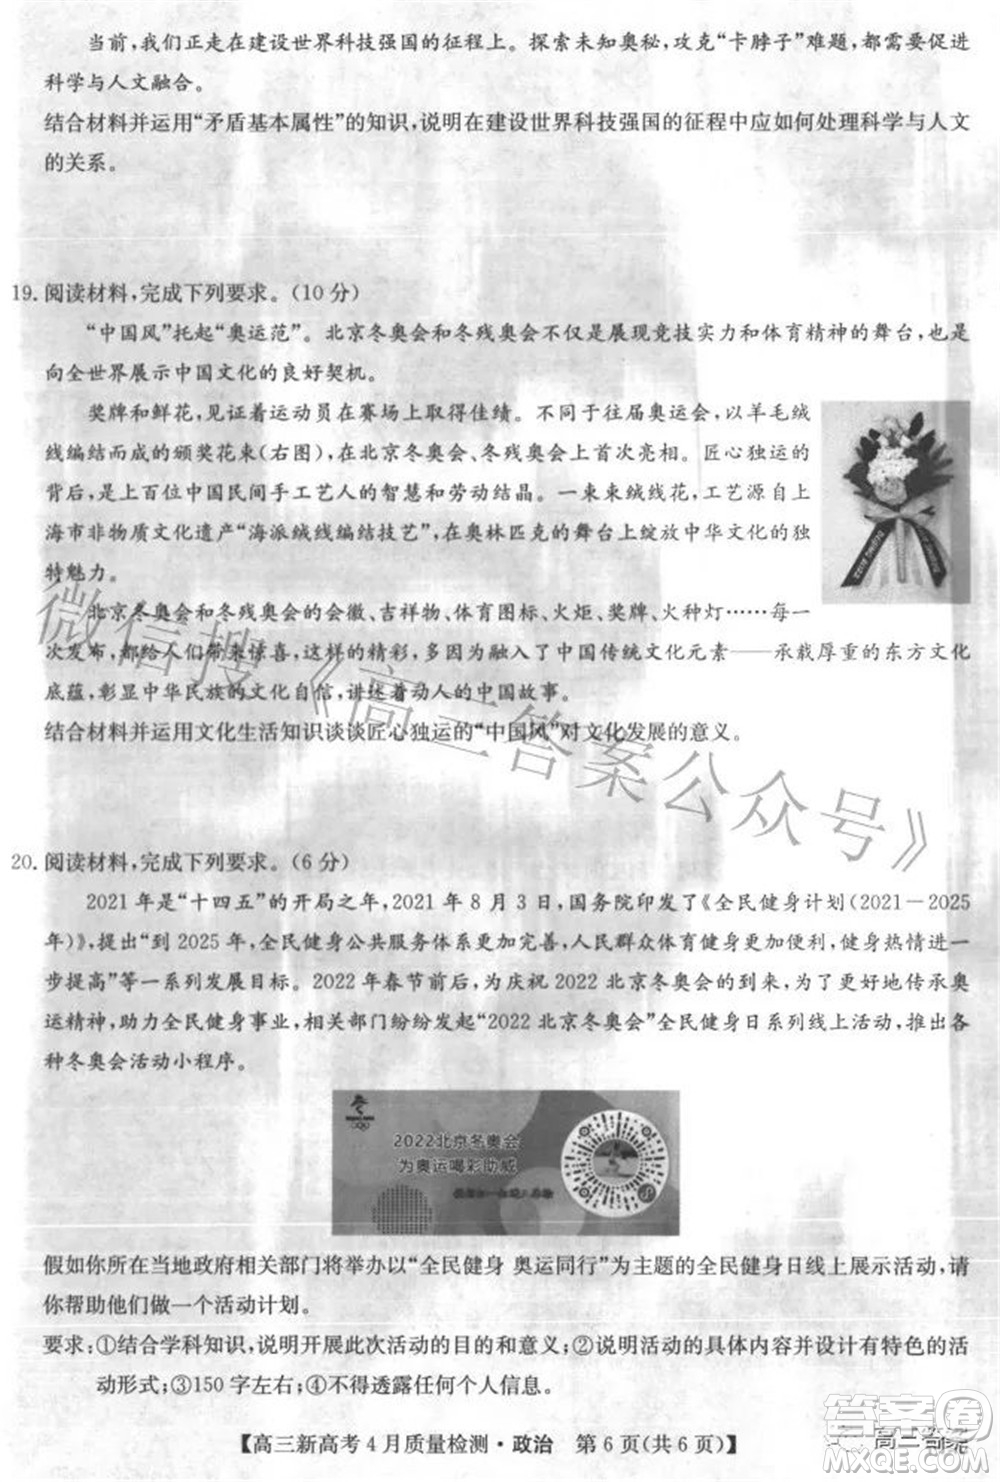 当前，我们正走在建设世界科技强国的征程上。探索未知奥秘，攻克“卡脖子”难题，都需要促进
科学与人文融合。
结合材料并运用“矛盾基本属性”的知识，说明在建设世界科技强国的征程中应如何处理科学与人文
的关系。
19. 阅读材料，完成下列要求。（10 分）
“中国风”托起“奥运范”。北京冬奥会和冬残奥会不仅是展现竞技实力和体育精神的舞台，也是
向全世界展示中国文化的良好契机。
奖牌和鲜花，见证着运动员在赛场上取得佳绩。不同于往届奥运会，以羊毛绒
线编结而成的颁奖花束（右图）在北京冬奥会、冬残奥会上首次亮相。匠心独运的
背后，是上百位中国民间手工艺人的智慧和劳动结晶。一束束绒线花，工艺源自上
海市非物质文化遗产“海派绒线编结技艺”，在奥林匹克的舞台上绽放中华文化的独
特魅力。
北京冬奥会和冬残奥会的会徽、吉祥物、体育图标、火炬、奖牌、火种灯……每一
次发布，都给人们带来惊喜，这样的精彩，融入了中国传统文化元素——承载厚重的东方文化
底蕴，彰显中华民族的文化自信，讲述着动人的中国故事。
结合材料并运用文化生活知识谈谈匠心独运的“中国风”对文化发展的意义。
20. 阅读材料，完成下列要求。（6 分）
2021 年是“十四五”的开局之年，2021 年 8 月 3 日，国务院印发了《全民健身计划（2021－2025
年）》，提出“到 2025 年，全民健身公共服务体系更加完善，人民群众体育健身更加便利，健身热情进一
步提高”等一系列发展目标。2022 年春节前后，为庆祝 2022 北京冬奥会的到来，为了更好地传承奥
运精神，助力全民健身事业，相关部门纷纷发起“2022 北京冬奥会”全民健身日系列线上活动，推出各
种冬奥会活动小程序。
2022北京冬奥会
为奥运喝彩助威
假如你所在当地政府相关部门将举办以“全民健身 奥运同行”为主题的全民健身日线上展示活动，请
你帮助他们做一个活动计划。
要求：①结合学科知识，说明开展此次活动的目的和意义；②说明活动的具体内容并设计有特色的活
动形式；③150 字左右；④不得透露任何个人信息。
【高三新高考 4 月质量检测·政治 第 6 页（共 6 页）】
微信搜《高三答案公众号》
答案卷
高三答案